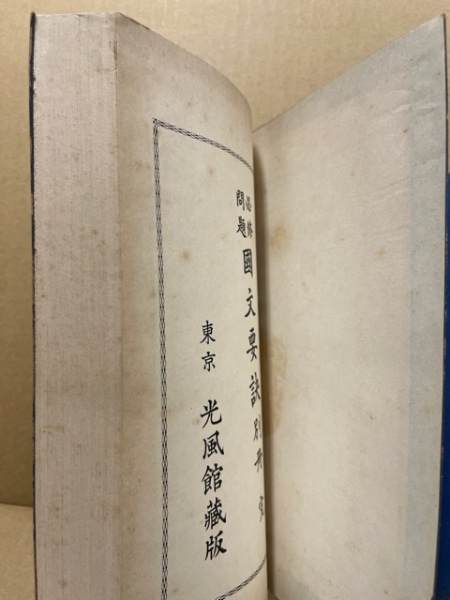 必修
問題
國文要訣別冊
東京 光風館藏版